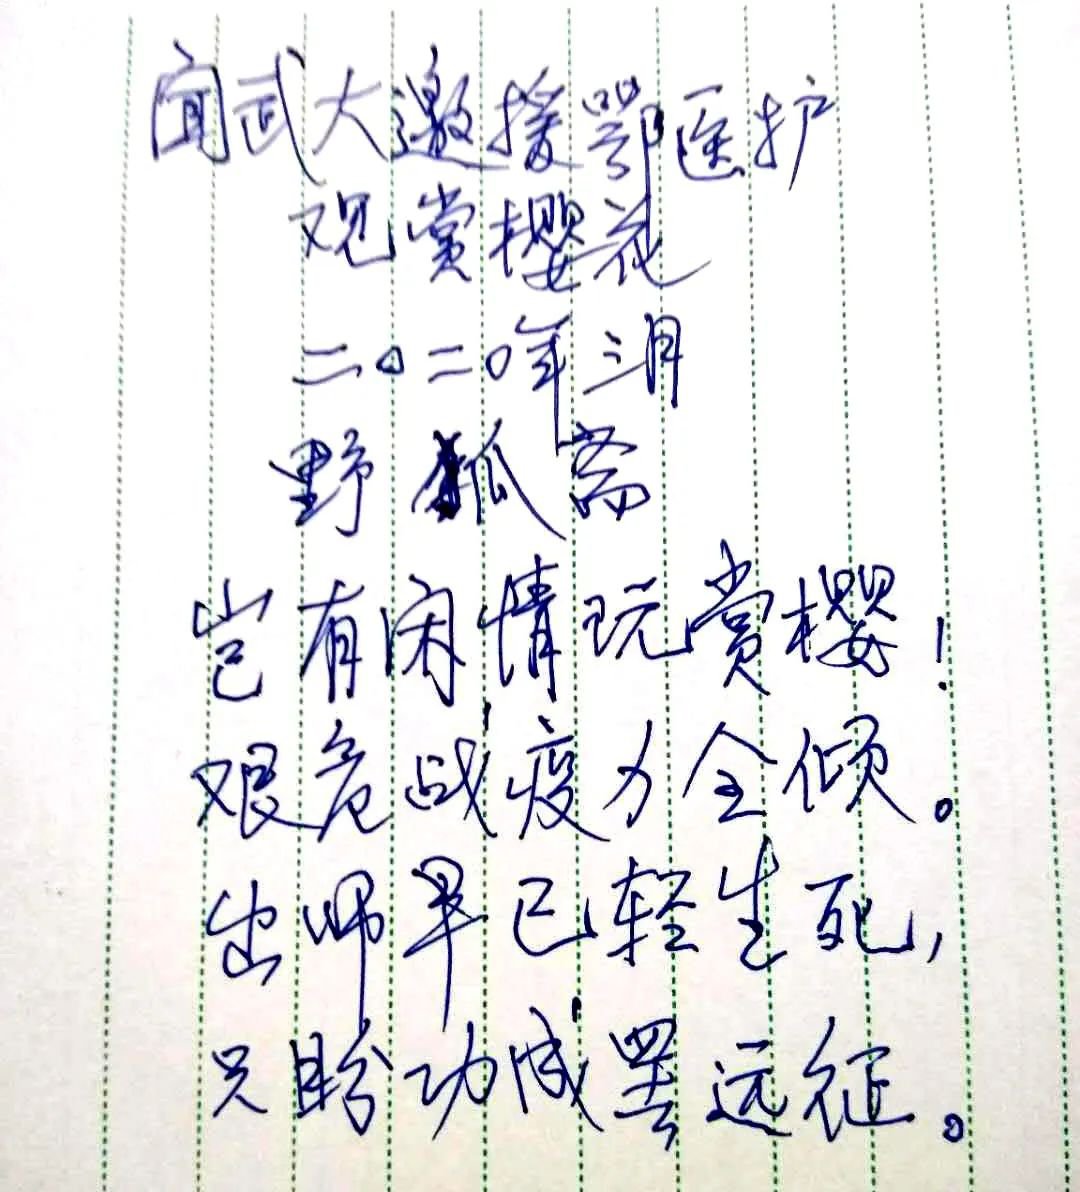 闻武大邀援鄂医护
观赏樱花
二〇二〇年三月
野狐斋
岂有闲情玩赏樱！
艰危战疫力全倾。
出师早已轻生死，
只盼功成罢远征。